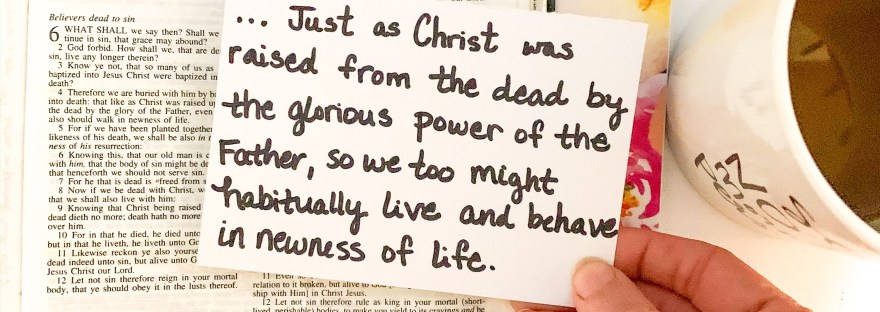 Believers dead to sin
6 WHAT SHALL we say then? Shall we
tinue in sin, that grace may abound?
2 God forbid. How shall we, that are de
sin, live any longer therein?
3 Know ye not, that so many of us as
baptized into Jesus Christ were baptized in
death?
4 Therefore we are buried with him by b
into death: that like as Christ was raised u
the dead by the glory of the Father, even
also should walk in newness of life.
5 For if we have been planted together
likeness of his death, we shall be also in t
ness of his resurrection:
6 Knowing this, that our old man is c
with him, that the body of sin might be de
that henceforth we should not serve sin.
7 For he that is dead is freed from s
8 Now if we be dead with Christ, w
that we shall also live with him:
9 Knowing that Christ being raised
dead dieth no more; death hath no more
over him.
10 For in that he died, he died unto
but in that he liveth, he liveth unto Go
11 Likewise reckon ye also yourse
dead indeed unto sin, but alive unto G
Jesus Christ our Lord.
12 Let not sin therefore reign in your mortal
body, that ye should obey it in the lusts thereof.
... Just as Christ was
raised from the dead by
the glorious power of the
Father, so we too might
habitually live and behave
in newness of life.
11 Even
relation to it broken, but alive to
ship with Him] in Christ Jesus.
12 Let not sin therefore rule as king in your mortal (short-
lived, perishable) bodies, to make you yield to its cravings and be